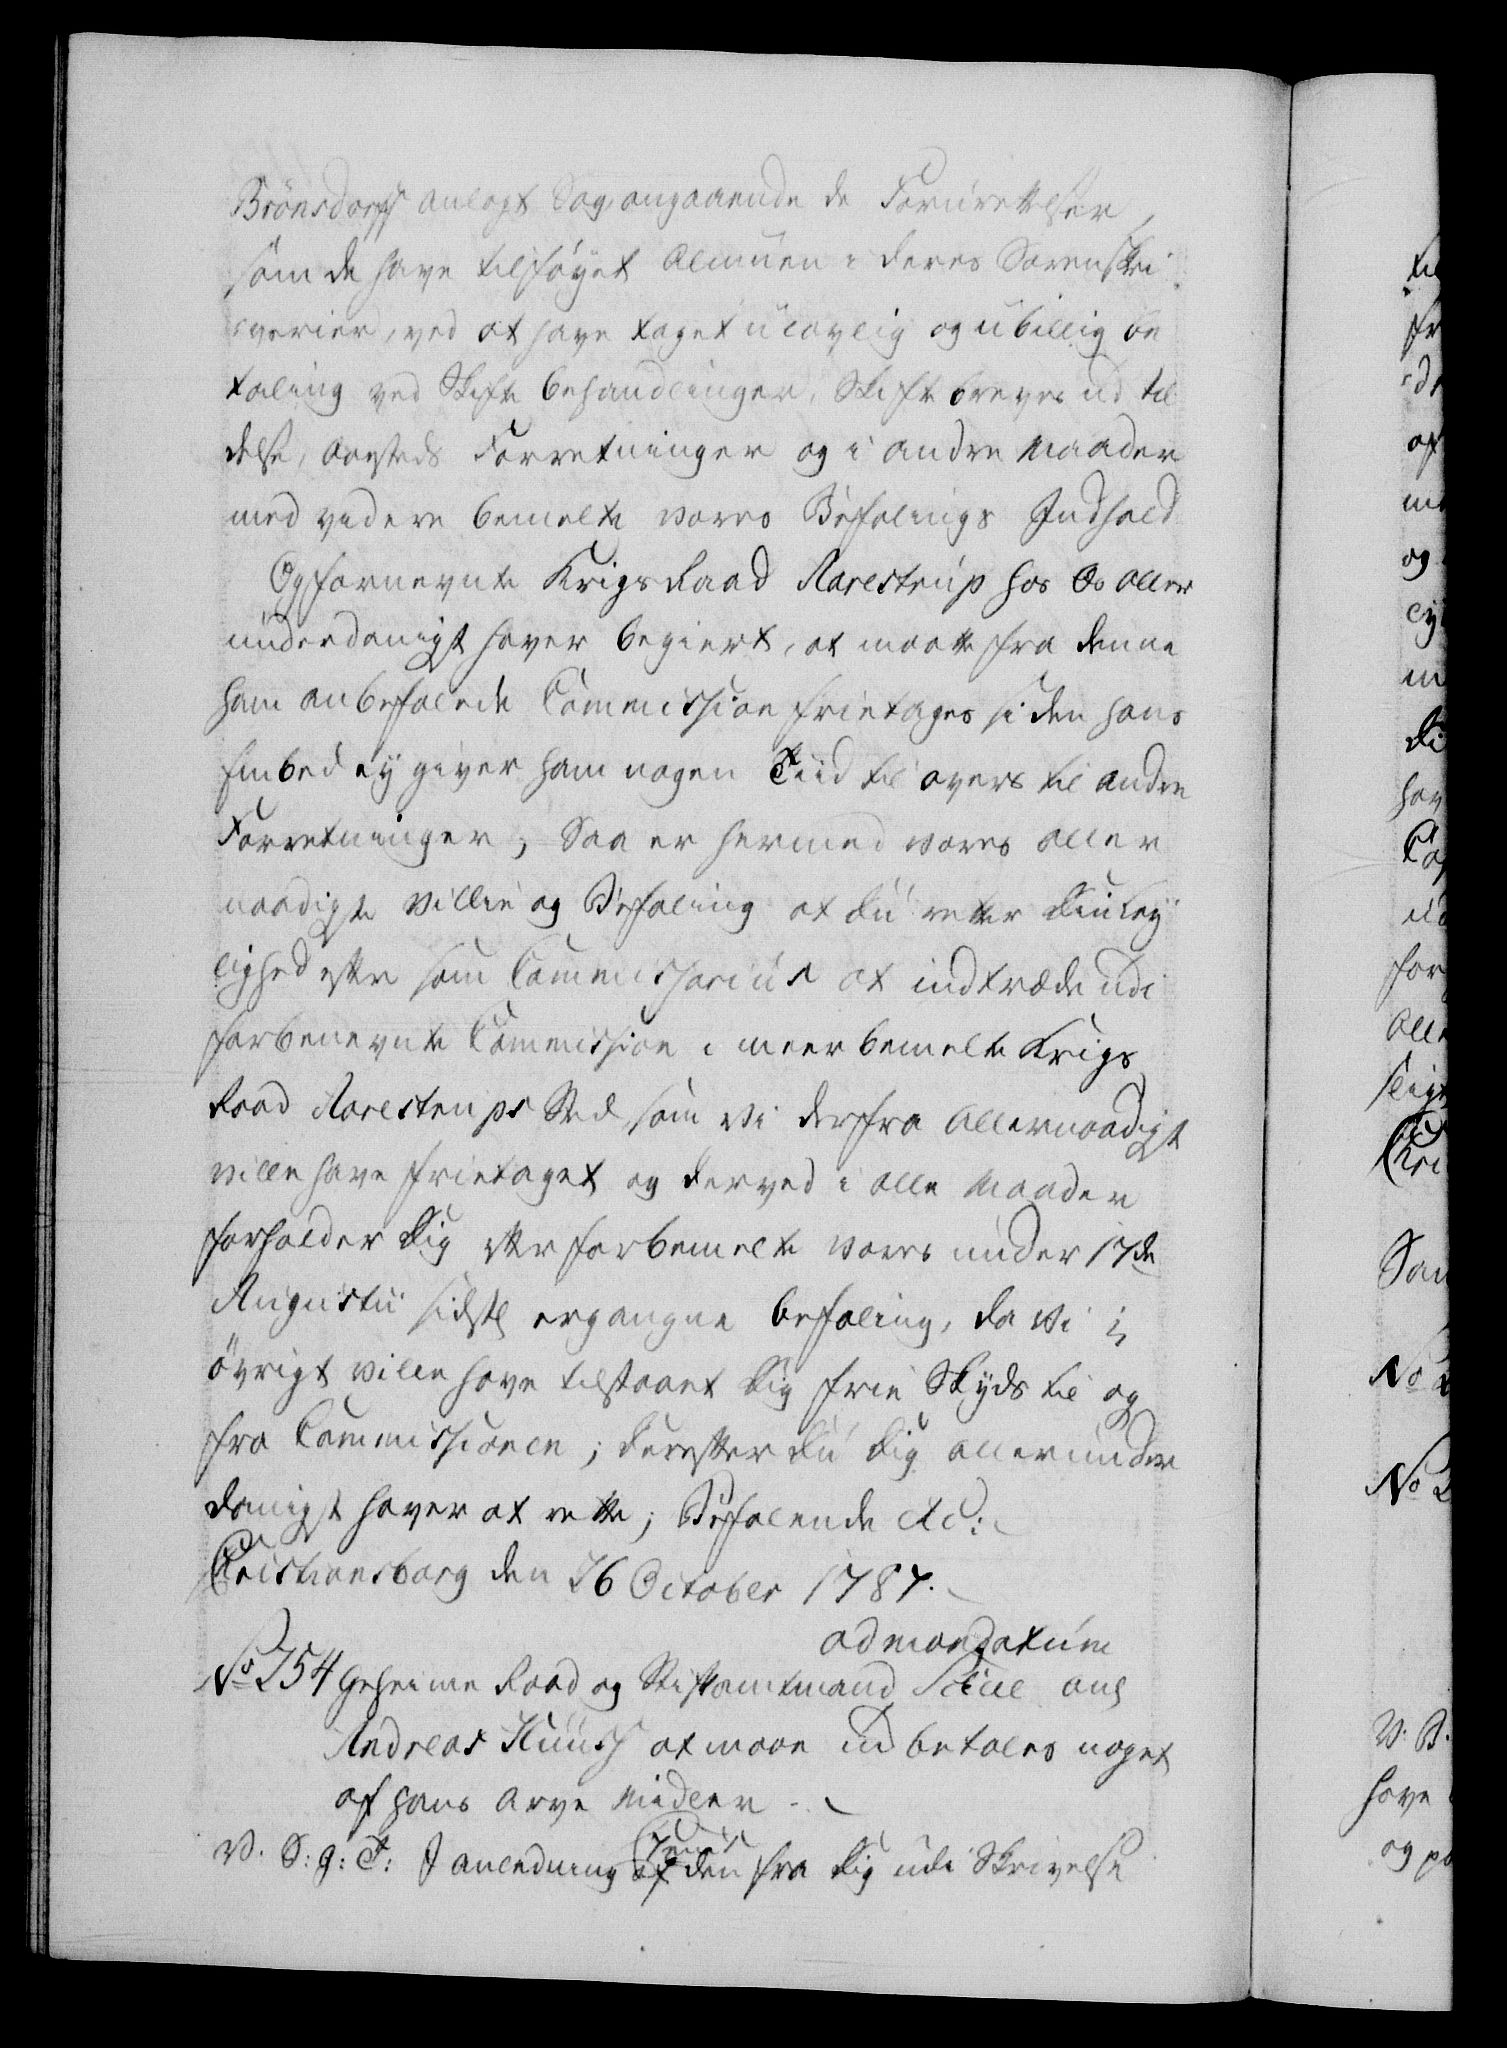 Brönsdorff anlagt Sag angaaende de Forurettelser,
som de have tilføyet Almuen i deres Sorenskri
verier, ved at have taget ulovlig og ubillig be
taling ved Skifte behandlinger, Skifte breves ud til
delse, Aasteds Forretninger og i andre Maader
med videre bemelte vores Befalings Indhold
Og fornevnte Krigs Raad Aarestrup hos Os aller
underdanigst haver begiert, at maatte fra denne
ham anbefalede Commission frietages siden hans
Embed ey giver ham nogen Tiid til overs til andre
Forretninger; Saa er hermed vores aller
naadigste Villie og Befaling at du retter din Ley
lighed efter som Commissarius at indtræde udi
forbenevnte Commission i meerbemelte Krigs
Raad Aarestrups Sted, som vi derfra Allernaadigst
ville have frietaget og derved i alle Maader
forholder Dig efter forbemelte vores under 17de
Augustii sidstl ergangne befaling, da vi i
övrigt ville have tilstaaet Dig frie Skyds til og
fra Commissionen; derefter du Dig allerunder
danigst haver at rette; Befalende etc:
Christiansborg den 26 October 1787.
ad mandatum
No 254 Geheime Raad og Stiftamtmand Scheel ang
Andreas Kuusz at maae udbetales noget
af hans Arve Midler
V. S: g: T: I anledning af den fra Dig udi Skrivelse
til
fr
af
og
ey
m
Di
hav
for
Alle
Chri
San
No
No 2
V: B.
have
og p